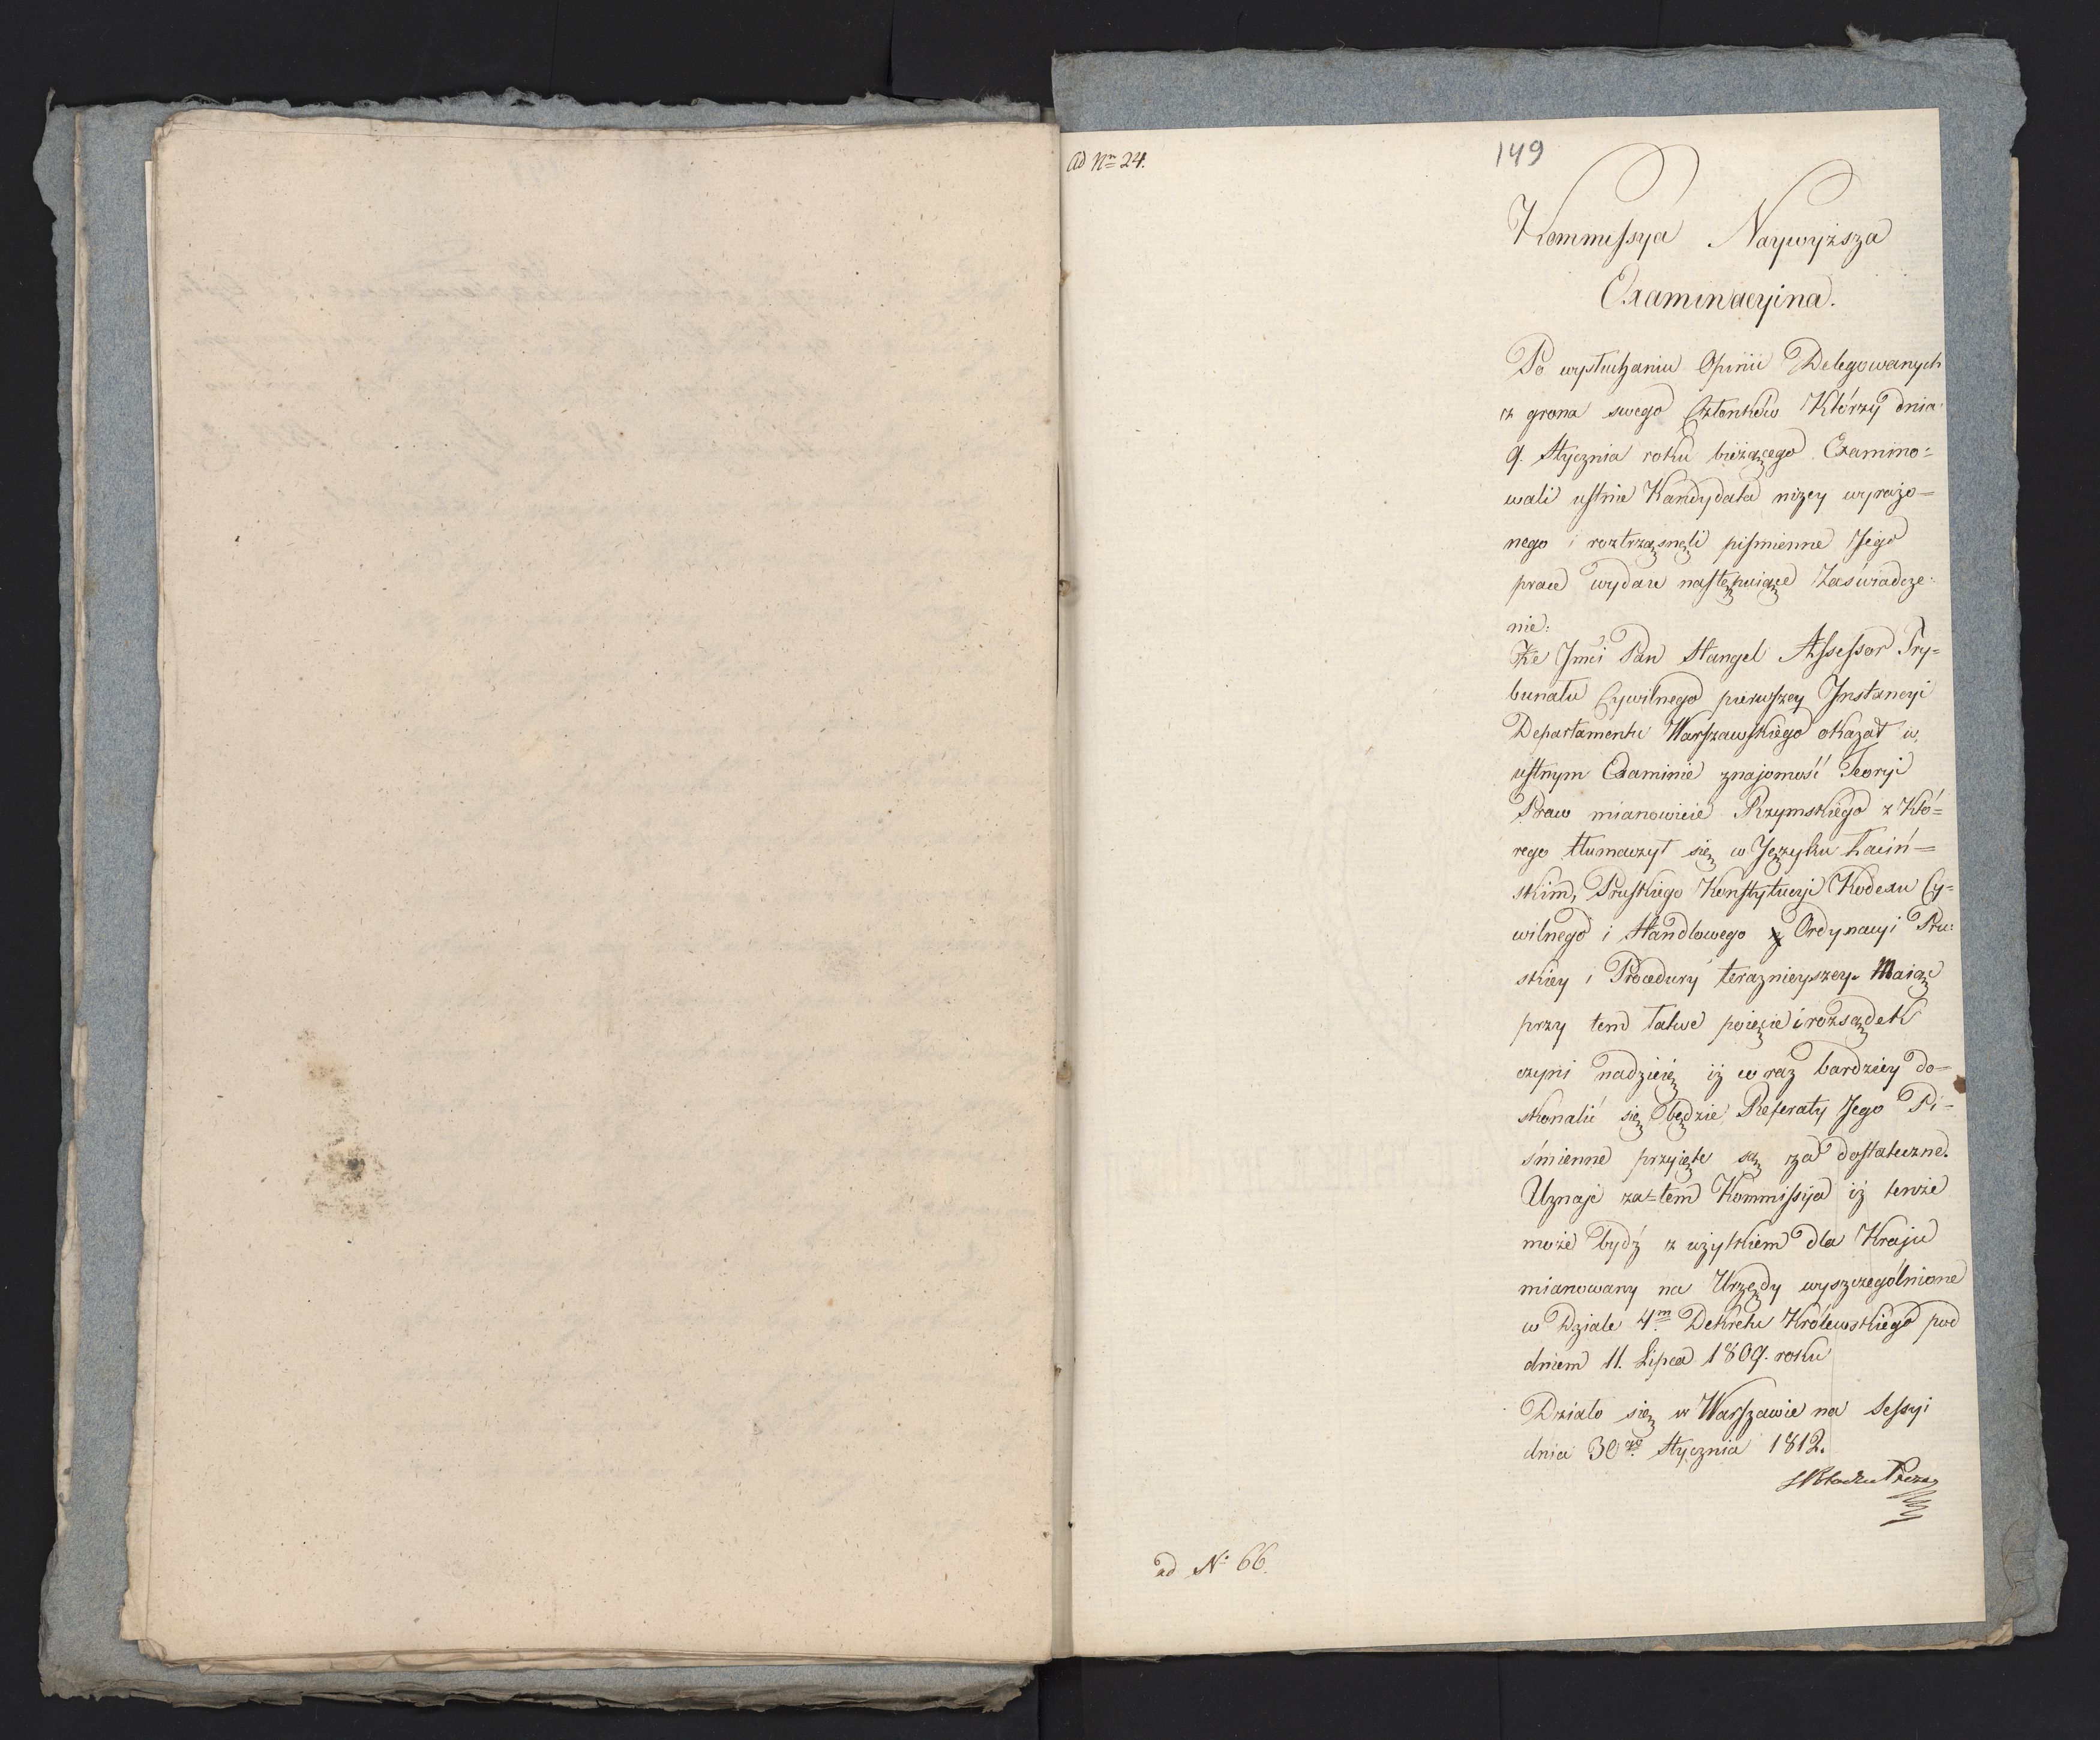 ad Nro 24.
149
Kommissya Naywyższa
Examinacyina.
Po wysłuchaniu Opinii Delegowanych
z grona swego Członków Którzy dnia
9. Stycznia roku bieżącego Examino=
wali ustnie Kandydata niżey wyrażo=
nego i roztrząsnęli piśmienne Jego
prace wydaie następuiące Zaświadcze=
nie:
Że Jmci Pan Stangel Assessor Try=
bunału Cywilnego pierwszey Instancyi
Departamentu Warszawskiego okazał w
ustnym Examinie znajomość Teoryi
Praw mianowicie Rzymskiego z Któ=
rego tłumaczył się w Języku Łaciń=
skim, Pruskiego Konstytucyi Kodexu Cy=
wilnego i Handlowego Ordynacyi Pru=
skiey i Procedury teraznieyszey. Maiąc
przy tem łatwe poięcie i rozsądek
czyni nadzieię iż coraz bardziey do=
skonalić się będzie, Referaty Jego Pi=
śmienne przyięte są za dostateczne.
Uznaje za=tem Kommissija iż tenże
może bydź z użytkiem dla Kraju
mianowany na Urzędy wyszczególnione
w Dziale 4m Dekretu Królewskiego pod
dniem 11. Lipca 1809. roku
Działo się w Warszawie na Sessyi
dnia 30go Stycznia 1812.
ad No 66.